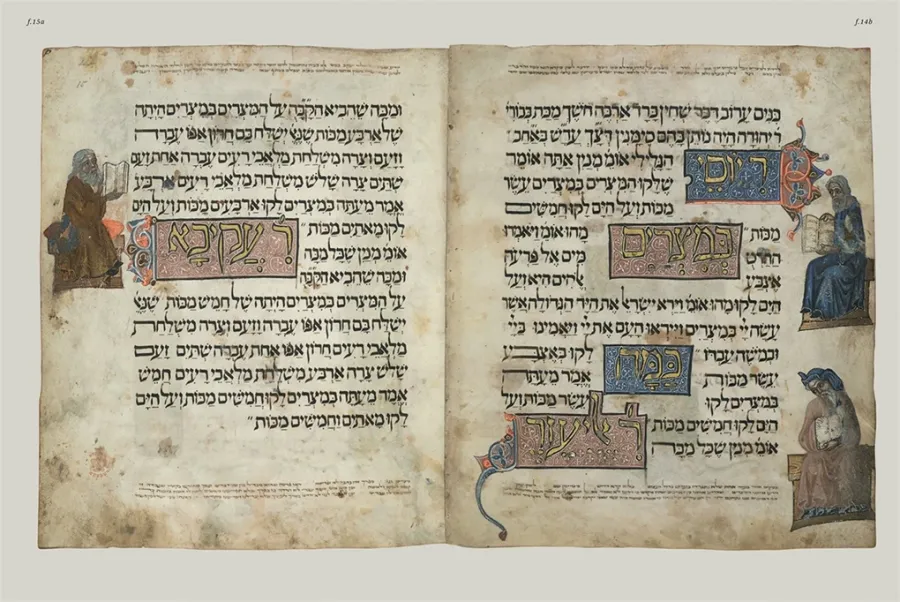 כנים ערוב דבר שחין ברד ארבה חשך מכת בכורי
ר יהודה היה נותן בהם סימנין דצך עדש באחב
ר יוסי הגלילי אומ מנין אתה אומר
שלקו המצרים במצרים עשר
מכות ועל הים לקו חמשים
מכות במצרים מהו אומ ויאמרו
החרט מים אל פרעה
אצבע אלהים היא ועל
הים לקו מהו אומ וירא ישרא את היד הגדולה אשר
עשה יי במצרים וייראו העם את יי ויאמינו ביי
ובמשה עבדו כמה לקו באצבע
עשר מכות אמר מעתה
במצרים לקו עשר מכות ועל
הים לקו חמשים מכות ר אליעזר
אומ מנין שכל מכה
ומכה שהביא הקבה על המצרים במצרים היתה
של ארבע מכות שנא ישלח בם חרון אפו עברה
וזעם וצרה משלחת מלאכי רעים עברה אחת זעם
שתים צרה שלש משלחת מלאכי רעים ארבע
אמר מעתה במצרים לקו ארבעים מכות ועל הים
לקו מאתים מכות ר עקיבא
אומ מנין שכל מכה
ומכה שהביא הקבה
על המצרים במצרים היתה של חמש מכות שנא
ישלח בם חרון אפו עברה וזעם וצרה משלחת
מלאכי רעים חרון אפו אחת עברה שתים זעם
שלש צרה ארבע משלחת מלאכי רעים חמש
אמר מעתה במצרים לקו חמשים מכות ועל הים
לקו מאתים וחמשים מכות
f.15a
f.14b